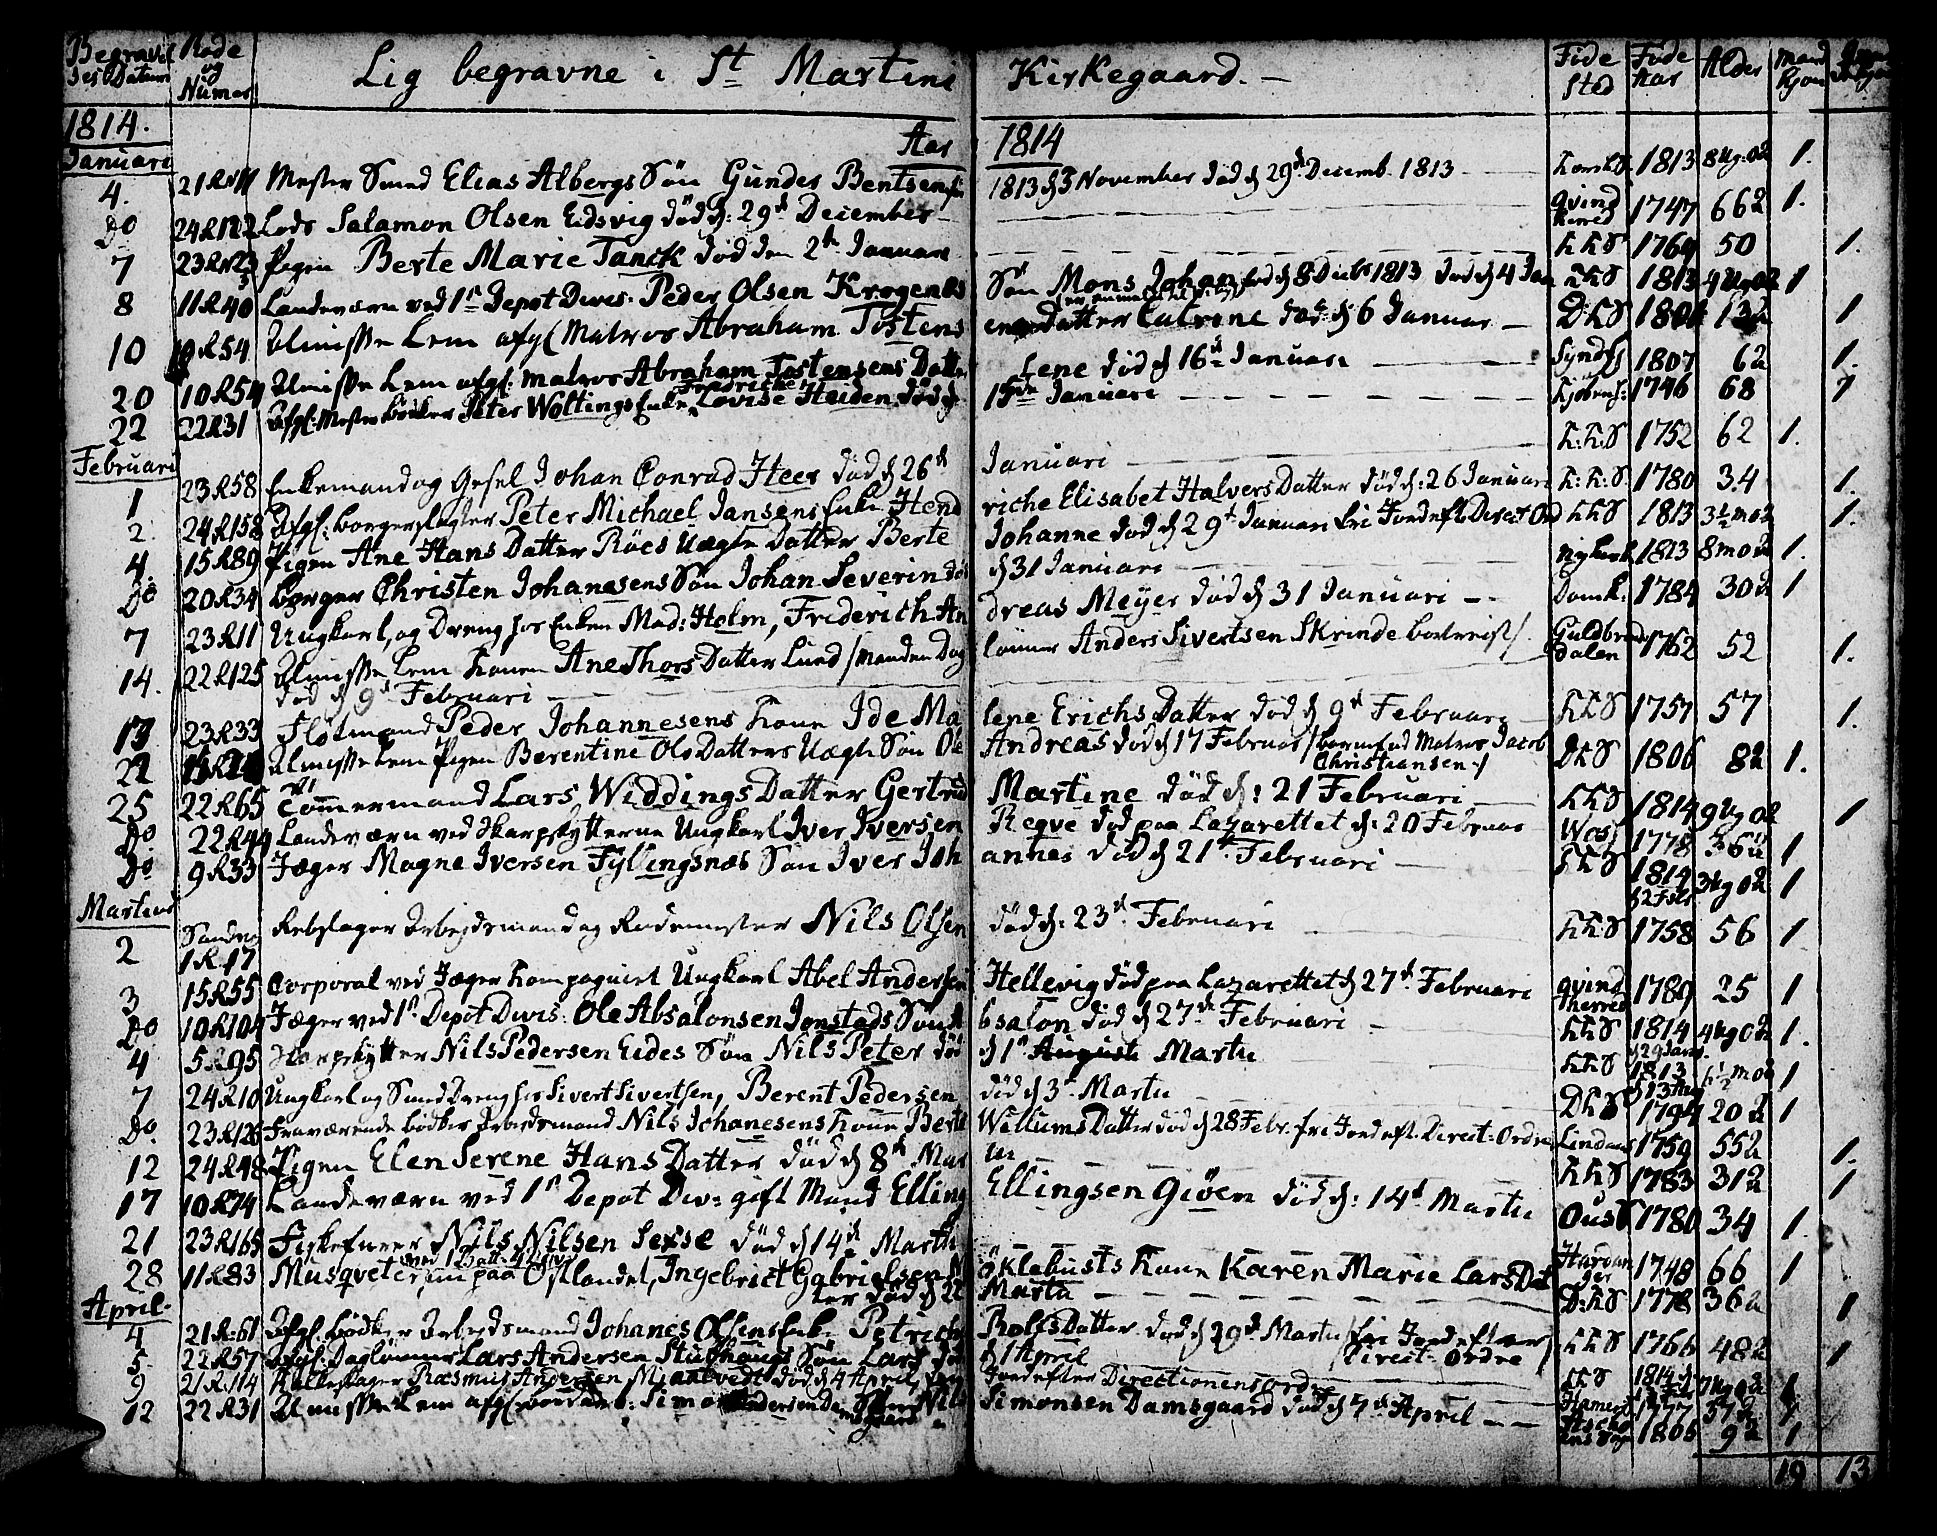 Begravelses Datum Rode og Numer Lig begravne i St Martini Kirkegaard. Føde Sted Føde Aar Alder Mand kjøn
1814. Aar 1814
Januari
4. 21R Mester Smed Elias Albergs Søn Gunder Bentsen 1813 d 3 November død d 29d Decemb. 1813 1813 8Ug. 1.
Do 24R122 Lods Salamon Olsen Eidsvig død d: 29d December qvind hered 1747 66 1.
7 23R Pigen Berte Marie Tanck død den 2de Januari KKS 1764 50 1.
8 11R40 Landeværn ved 1ste Depot Divis: Peder Olsen Krogenes Søn Mons Johan fød d 8 Decbr 1813 død d 4 Jan KKS 1813 4Ug 1
10 R54 Almisse Lem afgl Matros Abraham Tostens Datter Catrine død d 6 Januar DKS 1
20 10R54 Almisse Lem afgl: Matros Abraham Tostensens Datter Lene død d 16d Januari 1807 6 1.
22 22R31 Afgl: Mester Bødker Peter Woltings Enke Fredriche Lovise Heiden død d 15de Januari Kjøbenh: 1746 68 1
Februari
1 23R58 Enkemand og Gesel Johan Conrad Heer død d 26d Januari K:K:S 1752 62 1.
2. 24R158 Afgl: borger slagter Peter Michael Jansens Enke Hendriche Elisabet Halvers Datter død d: 26 Januari K:K:S. 1780 34 1.
4. 15R89 Pigen Ane Hans Datter Röes Uægte Datter Berte Johanne død d 29d Januari fri Jord eft Direct Ord KKS 1813 3½ mo 1.
Do 20R34 Borger Christen Johannesens Søn Johan Severin død d 31 Januari 1813 8 mo 1.
7 23R11 Ungkarl, og Dreng hos Enken Mad: Holm, Friderich Andreas Meyer død d 31 Januari Dank: 1784 30 1
14. 22R125 Almisse Lem Konen Ane Thors Datter Lund /Manden Daglønner Anders Sivertsen Skrinde bortreist/. Guldbrandsdalen 1762 52 1.
død d 9d Februari
13 23R33 Flotmand Peder Johannesens Kone Ide Malene Erichs Datter død d 9d Februari KKS 1757 57 1.
22 Almisse Lem Pigen Berentine Ols Datters Uægte Søn Ole Andreas død d 17 Februar /barnefad Matros Jacob Christiansen/ DKS 1806 8 1.
25 22R65 Tømermand Lars Widdings Datter Gertrud Martine død d: 21 Februari KKS 1814 9Ug 1
Do 22R44 Landeværn ved Skarpskytterne Ungkarl Iver Iversen Reqve død paa Lazarettet d: 20 Februar Woss 1778 36 1
Do 9R33 Jæger Magne Iversen Fyllingsnæs Søn Iver Johannes død d 21d Februari KKS 1814 3Ug 1
Martius
2 1R17 Rebslager Arbejdsmand og Rodemester Nils Olsen død d: 23d Februari KKS 1758 56 1
3 15R55 Corporal ved Jæger Kompagniet Ungkarl Abel Andersen Hellevig død paa Lazarettet d 27d Februari qvind herred 1789 25 1
Do 10R104 Jæger ved 1ste Depot Divis: Ole Absalonsen Jonstads Søn Absalon død d 27d Februari KKS 1814 4Ug 1.
4 5R95 Skarpskytter Nils Pedersen Eides Søn Nils Peter død d 1ste Martii KKS 1813 1
7 24R10 Ungkarl og Smed Dreng hos Sivert Sivertsen, Berent Pedersen død d 3d Martii DKS 1794 20 1
Do. 23R126 Fraværende bødker Arbejdsmand Nils Johanesens Kone Berte Willums Datter død d 28 Febr. fri Jord eft. Direct: Ordre Lindaas 1759 55 1.
12 24R48 Pigen Elen Serene Hans Datter død d 8d Martii KKS 1783 31 1
17 10R74 Landeværn ved 1ste Depot Div: gift Mand Elling Ellingsen Giöen død d: 14d Martii Oust 1780 34 1.
21 23R165 Fiskefører Nils Nilsen Sexe død d 14d Martii Hardanger 1748 66 1
28 11R83 Musqveter paa Östlandet, Ingebrict Gabrielsen Nöklebusts Kone Karen Marie Lars Datter død d 22 Martii D:KS 1778 36 1
April
4 21R:61 Afgl. bødker Arbejdsmand Johanes Olsens Enke Petriche Rolfs Datter død d 29d Martii /fri Jord efter Direct: Ordre/ KKS 1766 48 1
5 22R57 Afgl: Daglønner Lars Andersen Søn Lars død d 1 April KKS 1814 7Ug 1
9 21R114 Rasmus Andersen død d 4 April, Jord efter Directionens ordre 1777 37
12 22R31 Almisse Lem afgl Simon Andersen Damsgaard Søn Nils Simonsen Damsgaard død d 7d April 1806 9 1
19 13